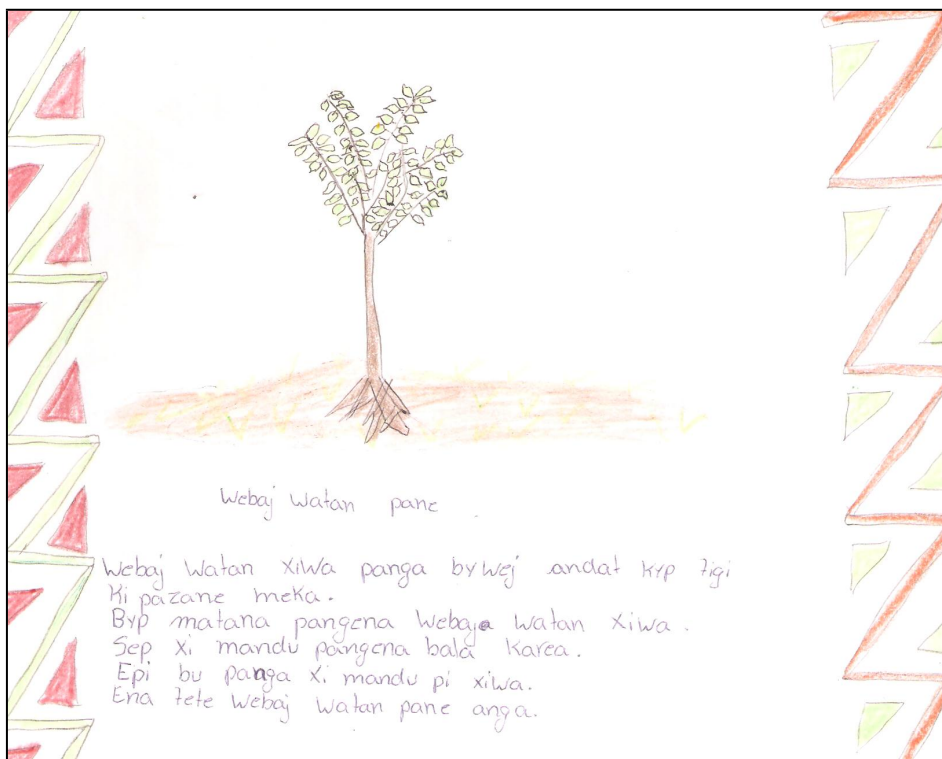 Webaj watan pane
Webaj watan xiwa panga bywej andat kyp tigi
ki pazane meka.
Byp matana pangena webaja watan xiwa.
Sep xi mandu pangena bala karea.
Epi bu panga xi mandu pi xiwa.
Ena tete webaj watan pane anga.